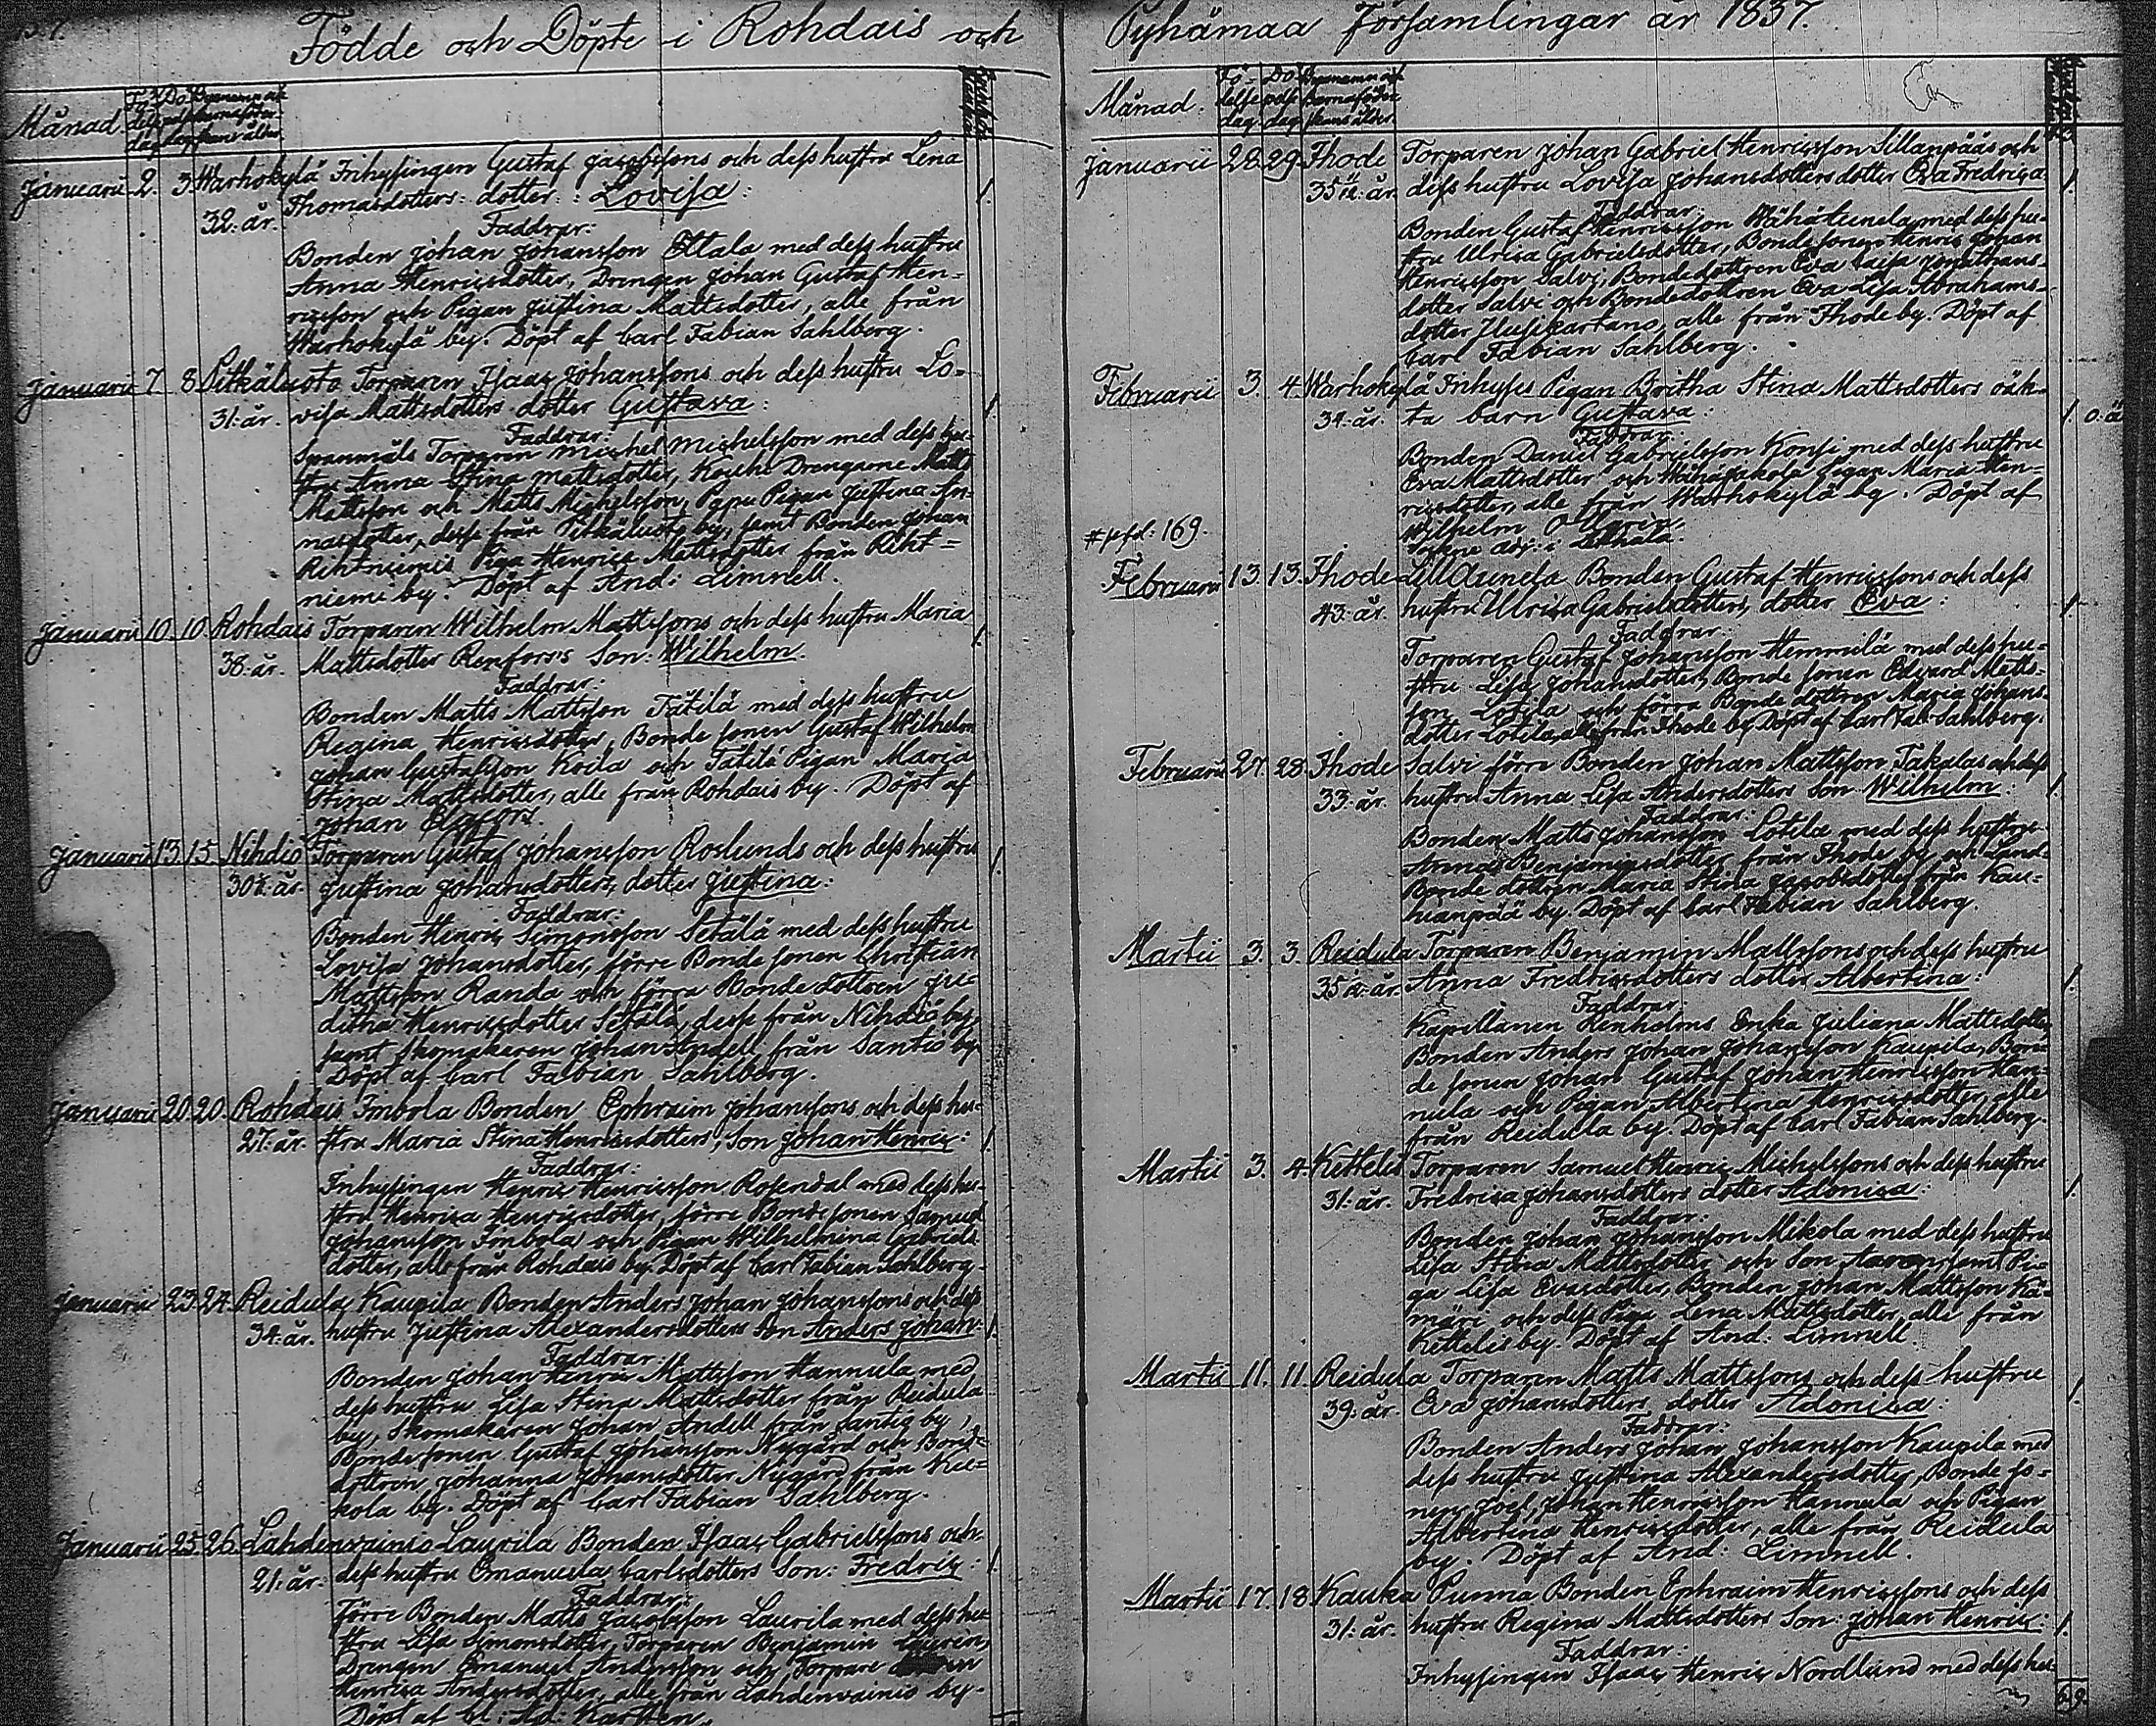 Födde och Döpte i Rohdais och
Månad. Fö- delse dag Dö- pelse dag Byanamn och barnaföder- skans ålder
Januarii 2. 3 Warhokylä Inhysingen Gustaf Jacobssons och dess hustru Lena
32: år. Thomasdotters: dotter: Lovisa: 1.
Faddrar:
Bonden Johan Johansson Ettala med dess hustru
Anna Henricsdotter, Drengen Johan Gustaf Hen-
ricsson och Pigan Justina Mattsdotter, alle från
Warhokylä by. Döpt af Carl Fabian Sahlberg.
Januarii 7. 8. Pitkäluoto Torparen Isaac Johanssons och dess hustru Lo-
31: år. visa Mattsdotters dotter Gustava: 1.
Faddrar:
Spannmåls Torparen Michel Michelsson med dess hu-
stru Anna Stina Mattsdotter, Drengarne Matts
Mattsson och Matts Michelsson, Pigan Justina An-
nasdotter, desse från Pitkäluoto by, samt Bonden Johan
Rihtniemis Piga Henrica Mattsdotter från Riht=
niemi by. Döpt af And: Limnell.
Januarii 10. 10. Rohdais Torparen Wilhelm Mattssons och dess hustru Maria
38: år. Mattsdotter Renfors's Son: Wilhelm. 1.
Faddrar:
Bonden Matts Mattsson Tätilä med dess hustru
Regina Henricsdotter, Bonde sonen Gustaf Wilhelm
Johan Gustafsson Koila och Tätilä Pigan Maria
Stina Mattsdotter, alle från Rohdais by. Döpt af
Johan Elgfors.
Januarii 13. 15. Nihdiö Torparen Gustaf Johansson Roslunds och dess hustru
30½: år. Justina Johansdotters, dotter Justina: 1.
Faddrar:
Bonden Henric Simonsson Setälä med dess hustru
Lovisa Johansdotter, förre Bonde sonen Christian
Mattsson Randa och förra Bonde dottren Ju-
ditha Henricsdotter Setälä, desse från Nihdiö by,
samt Skomakaren Johan Andell från Santio by
Döpt af Carl Fabian Sahlberg.
Januarii 20. 20. Rohdais Imbola Bonden Ephraim Johanssons och dess hu-
27: år. stru Maria Stina Henricsdotters, Son Johan Henric: 1.
Faddrar:
Inhysingen Henric Henricsson Rosendal med dess hu-
stru Henrica Henricsdotter, förre Bonde sonen Samuel
Johansson Imbola och Pigan Wilhelmina Gabriels-
dotter, alle från Rohdais by. Döpt af Carl Fabian Sahlberg.
Januarii 23. 24. Reidula Kaupila Bonden Anders Johan Johanssons och dess
34: år. hustru Justina Alexandersdotters Son Anders Johan: 1.
Faddrar:
Bonden Johan Henric Mattsson Hannula med
dess hustru Lisa Stina Mattsdotter från Reidula
by, Skomakaren Johan Andell från Santio by,
Bondesonen Gustaf Johansson Nygård och Bond-
dottren Johanna Johansdotter Nygård från Ku=
kola by. Döpt af Carl Fabian Sahlberg.
Januarii 25. 26. Lahdenvainio Laurila Bonden Isaac Gabrielssons och
21: år. dess hustru Emanuela Carlsdotters Son: Fredric: 1.
Faddrar:
Förre Bonden Matts Jacobsson Laurila med dess hu-
stru Lisa Simonsdotter, Torparen Benjamin Laurén,
Drengen Emanuel Andersson och Torpare
Henrica Andersdotter, alle från Lahdenvainio by.
Döpt af Karsten.
Pyhämaa Församlingar år 1837.
Månad. Fö- delse dag. Dö- pelse dag Byanamn och barnaföder- skans ålder
Januarii 28. 29. Ihode Torparen Johan Gabriel Henricsson Sillanpääs och
35½: år. dess hustru Lovisa Johansdotters dotter Eva Fredrica 1.
Faddrar:
Bonden Gustaf Henricsson Wähä Aunela med dess hu-
stru Ulrica Gabrielsdotter, Bondesonen Henric Johan
Henricsson Salvi, Bondedottren Eva Caisa Jonathans-
dotter Salvi och Bondedottren Eva Lisa Abrahams-
dotter Uusikartano, alle från Ihode by. Döpt af
Carl Fabian Sahlberg.
Februarii 3. 4. Warhokylä Inhyses Pigan Britha Stina Mattsdotters oäk-
34: år. ta barn Gustava: 1. o.ä
Faddrar:
Bonden Daniel Gabrielsson Konsi med dess hustru
Eva Mattsdotter och Wähäjakola Pigan Maria Hen-
ricsdotter, alle från Warhokylä by. Döpt af
Wilhelm
169.
Februarii 13. 13. Ihode Lill Aunela Bonden Gustaf Henricssons och dess
43: år. hustru Ulrica Gabrielsdotters, dotter Eva: 1.
Faddrar:
Torparen Gustaf Johansson Hemmilä med dess hu-
stru Lisa Johansdotter, Bonde sonen Edvard Matts-
son Lotila och förra Bonde dottren Maria Johans-
dotter Lotila, alle från Ihode by. Döpt af Carl Fab: Sahlberg.
Februarii 27. 28. Ihode Salvi förre Bonden Johan Mattsson Takalas och dess
33: år. hustru Anna Lisa Andersdotters Son Wilhelm: 1.
Faddrar:
Bonden Matts Johansson Lotila med dess hustru
Anna Benjaminsdotter från Ihode by och Land-
Bonde dottren Maria Stina Jacobsdotter från Kau-
hianpää by. Döpt af Carl Fabian Sahlberg.
Martii 3. 3. Reidula Torparen Benjamin Mattssons och dess hustru
35½: år. Anna Fredricsdotters dotter Albertina: 1.
Faddrar:
Kapellanen Renholms Enka Juliana Mattsdotter,
Bonden Anders Johan Johansson Kaupila, Bon-
de sonen Johan Gustaf Johan Henricsson Han-
nula och Pigan Albertina Henricsdotter, alle
från Reidula by. Döpt af Carl Fabian Sahlberg.
Martii 3. 4. Kettelis Torparen Samuel Henric Michelssons och dess hustru
31: år. Fredrica Johansdotters dotter Adonica: 1.
Faddrar:
Bonden Johan Johansson Mikola med dess hustru
Lisa Stina Mattsdotter och Son Aaron, samt Pi-
ga Lisa Evasdotter, Bonden Johan Mattsson Kä-
märi och dess Piga Lena Mattsdotter, alle från
Kettelis by. Döpt af And: Limnell.
Martii 11. 11. Reidula Torparen Matts Mattssons och dess hustru
39: år. Eva Johansdotters, dotter Adonica: 1.
Faddrar:
Bonden Anders Johan Johansson Kaupila med
dess hustru Justina Alexandersdotter, Bonde so=
nen Joel Johan Henricsson Hannula och Pigan
Albertina Henricsdotter, alle från Reidula
by. Döpt af And: Limnell.
Martii 17. 18. Kauka Punna Bonden Ephraim Henricssons och dess
31: år. hustru Regina Mattsdotters Son: Johan Henric: 1.
Faddrar:
Inhysingen Isaac Henric Nordlund med dess hu-